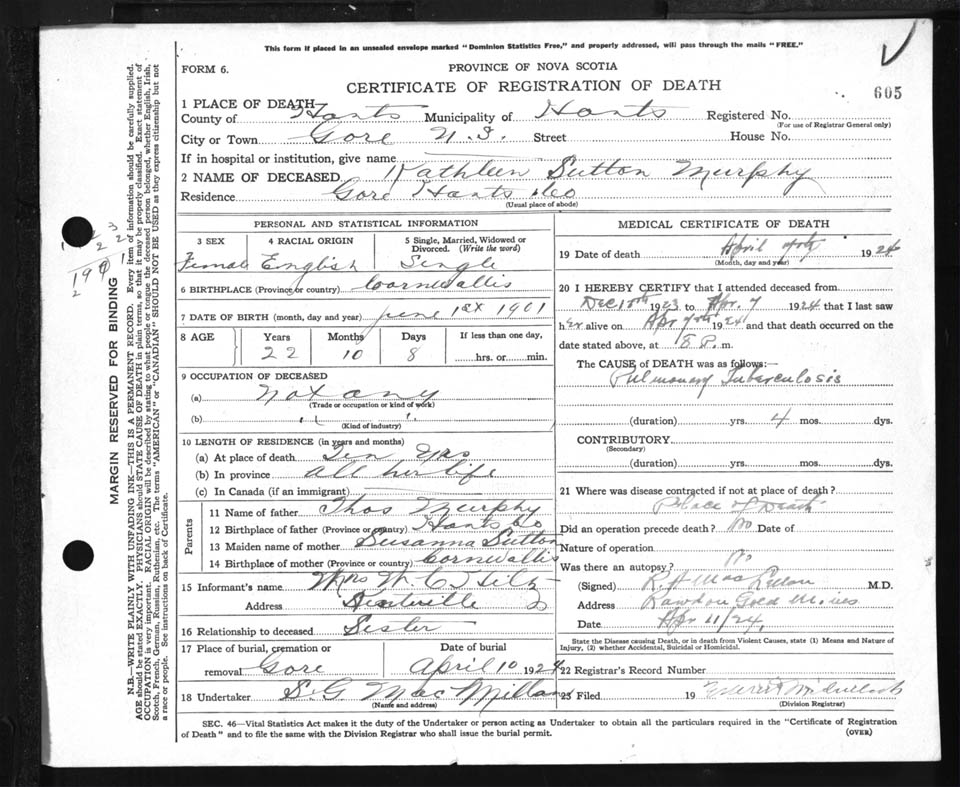 This form if placed in an unsealed envelope marked "Dominion Statistics Free," and properly addressed, will pass through the mails "FREE."
FORM 6.
PROVINCE OF NOVA SCOTIA
CERTIFICATE OF REGISTRATION OF DEATH
605
1 PLACE OF DEATH
County of Hants Municipality of Hants Registered No.
(For use of Registrar General only)
City or Town Gore N.S. Street House No.
If in hospital or institution, give name
2 NAME OF DECEASED Kathleen Sutton Murphy
Residence Gore Hants Co
(Usual place of abode)
PERSONAL AND STATISTICAL INFORMATION
3 SEX 4 RACIAL ORIGIN 5 Single, Married, Widowed or Divorced. (Write the word)
Female English Single
6 BIRTHPLACE (Province or country) Cornwallis
7 DATE OF BIRTH (month, day and year) June 1st 1901
8 AGE Years Months Days If less than one day,
22 10 8 hrs. or min.
9 OCCUPATION OF DECEASED
(a) not any
(Trade or occupation or kind of work)
(b) " "
(Kind of industry)
10 LENGTH OF RESIDENCE (in years and months)
(a) At place of death Ten Yrs
(b) In province all her life
(c) In Canada (if an immigrant)
Parents
11 Name of father Thos Murphy
12 Birthplace of father (Province or country) Hants Co
13 Maiden name of mother Susanna Sutton
14 Birthplace of mother (Province or country) Cornwallis
15 Informant's name Mrs W. C.
Address
16 Relationship to deceased Sister
17 Place of burial, cremation or removal Gore Date of burial April 10 1924
18 Undertaker S. G MacMillan
(Name and address)
MEDICAL CERTIFICATE OF DEATH
19 Date of death April 9th 1924
(Month, day and year)
20 I HEREBY CERTIFY that I attended deceased from
Dec 1923 to Apr. 7 1924 that I last saw
her alive on Apr 1924 and that death occurred on the
date stated above, at 8 P. m.
The CAUSE OF DEATH was as follows:—
Pulmonary Tuberculosis
(duration) yrs. 4 mos. dys.
CONTRIBUTORY
(Secondary)
(duration) yrs. mos. dys.
21 Where was disease contracted if not at place of death?
Place of Death
Did an operation precede death? No Date of
Nature of operation
Was there an autopsy? No
(Signed) M.D.
Address Rawdon Gold Mines
Date Apr 11/24
State the Disease causing Death, or in death from Violent Causes, state (1) Means and Nature of Injury, (2) whether Accidental, Suicidal or Homicidal.
22 Registrar's Record Number
23 Filed 19
(Division Registrar)
SEC. 46—Vital Statistics Act makes it the duty of the Undertaker or person acting as Undertaker to obtain all the particulars required in the "Certificate of Registration
of Death" and to file the same with the Division Registrar who shall issue the burial permit.
(OVER)
MARGIN RESERVED FOR BINDING
N.B.—WRITE PLAINLY WITH UNFADING INK—THIS IS A PERMANENT RECORD. Every item of information should be carefully supplied.
AGE should be stated EXACTLY. PHYSICIANS should STATE CAUSE OF DEATH in plain terms, so that it may be properly classified. Exact statement of
OCCUPATION is very important. RACIAL ORIGIN will be described by stating to what people or tongue the deceased person belonged, whether English, Irish,
Scotch, French, German, Russian, Ruthenian, etc. The terms "AMERICAN" or "CANADIAN" SHOULD NOT BE USED as they express citizenship but not
a race or people. See instructions on back of Certificate.